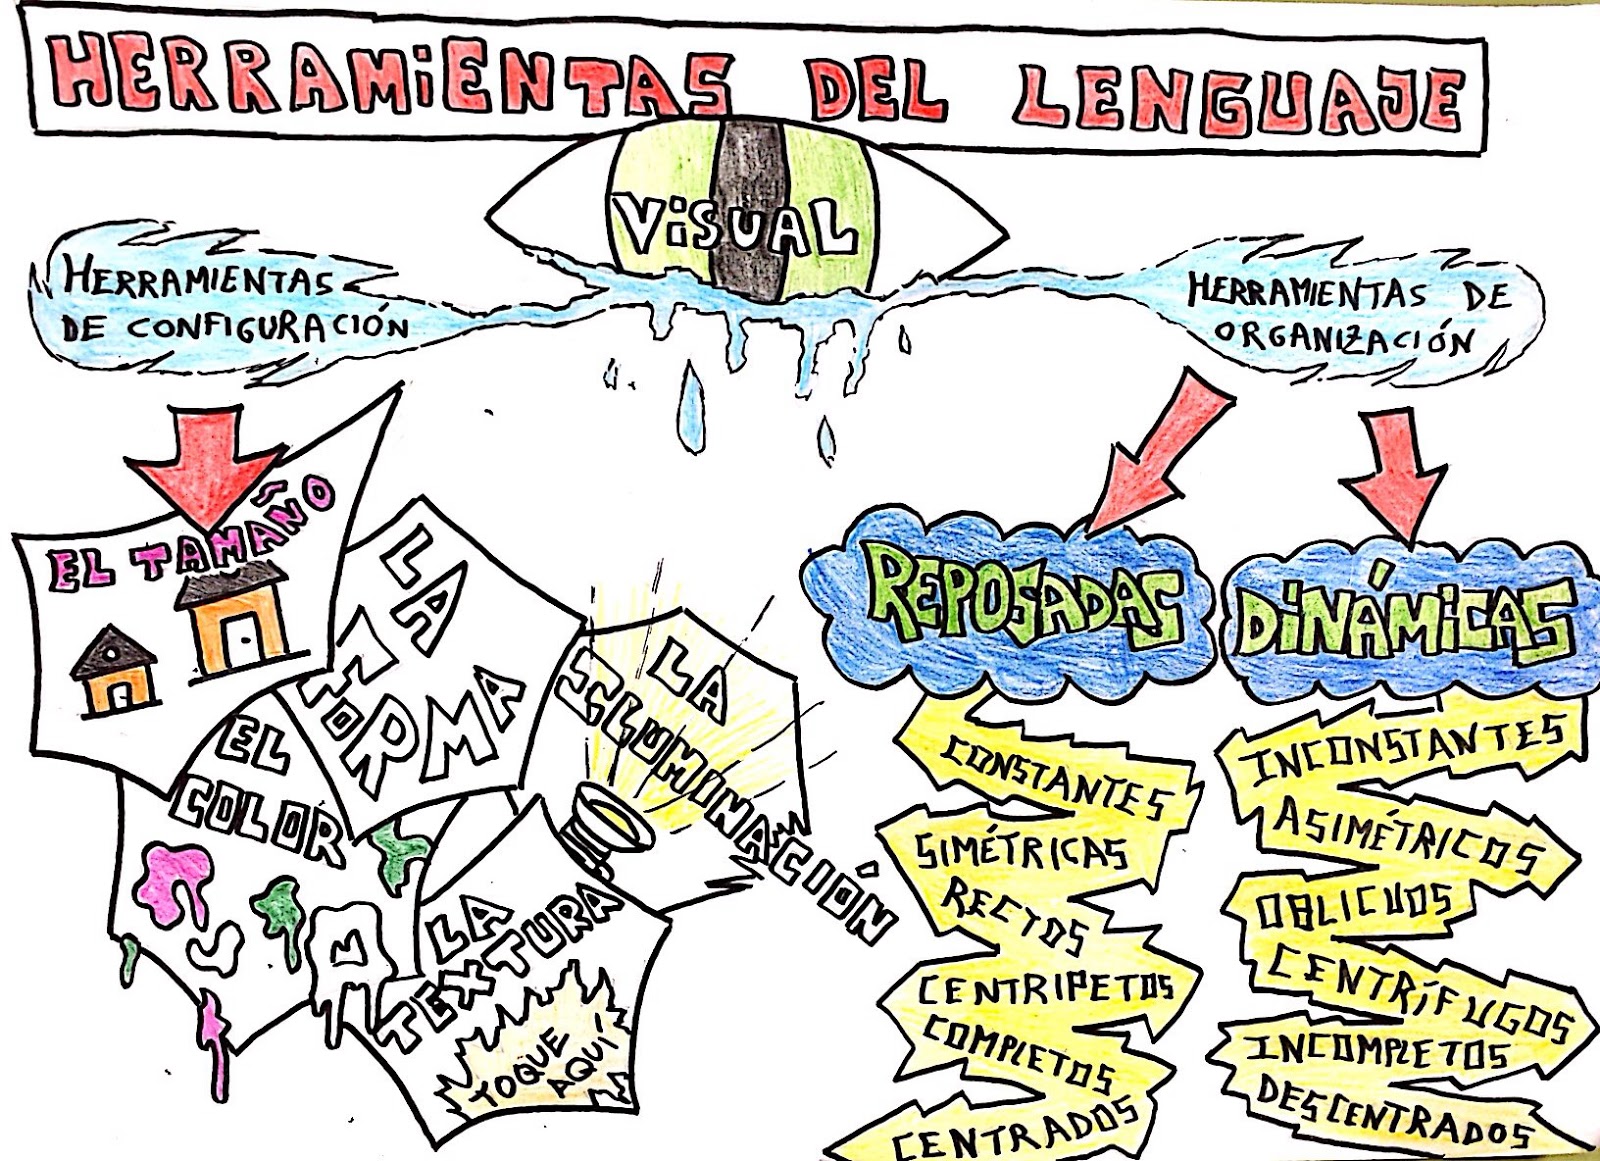 HERRAMiENTAS DEL LENGUAJE
ViSUAL
HERRAMIENTAS
DE CONFIGURACIÓN
HERRAMIENTAS DE
ORGANIZACIÓN
EL TAMAÑO
LA
FORMA
LA
ILUMINACIÓN
EL
COLOR
LA
TEXTURA
TOQUE
AQUÍ
REPOSADAS
CONSTANTES
SIMÉTRICAS
RECTOS
CENTRIPETOS
COMPLETOS
CENTRADOS
DiNÁMiCAS
INCONSTANTES
ASIMÉTRICOS
OBLICUOS
CENTRÍFUGOS
INCOMPLETOS
DESCENTRADOS